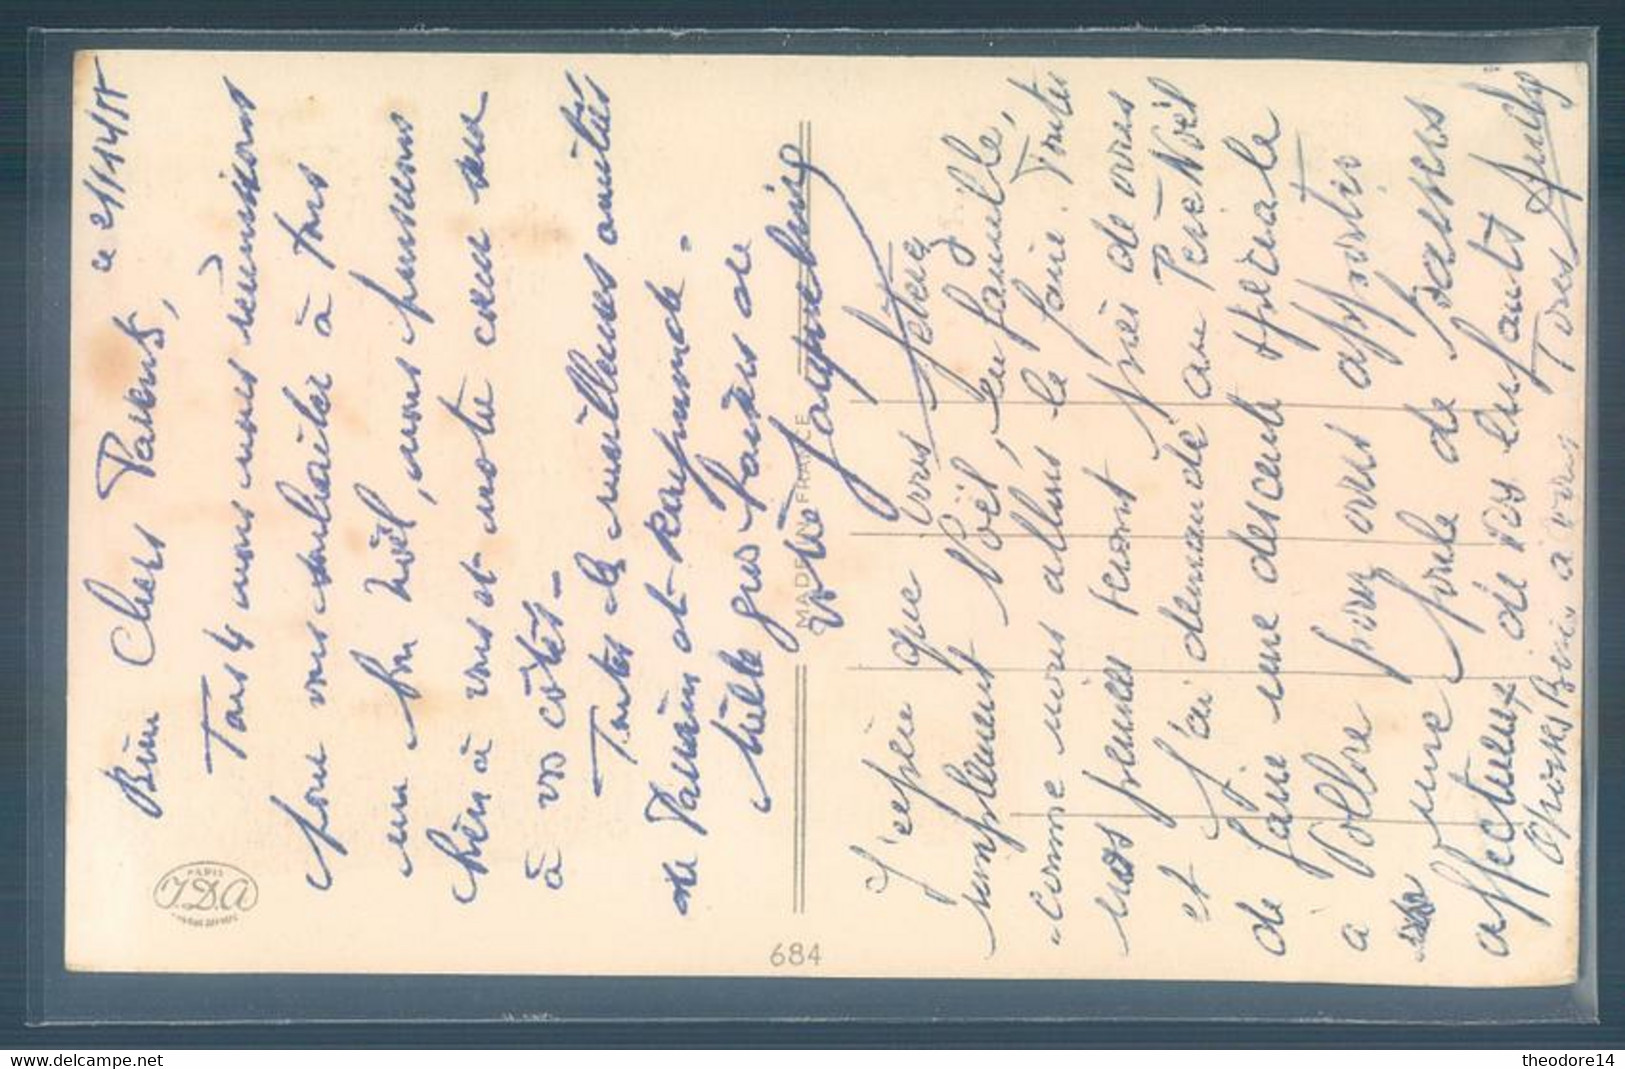 ce 21/12/48
Bien Chers Parents,
Tous nous nous réunissons
pour vous souhaiter à tous
un bon Noël, nous pensons
bien à vous et notre cœur sera
à vos côtés -
Toutes les meilleures amitiés
de Maman et Raymonde -
Mille gros baisers de
votre Jacqueline
J'espère que vous fêterez
simplement Noël, en famille,
comme nous allons le faire. Toutes
nos pensées seront près de vous
et j'ai demandé au Père Noël
de faire une descente spéciale
à pour vous apporter
une foule de baisers
affectueux de vos enfants
à vous Tous
PARIS
J.D.A
MADE FRANCE
684
theodore14
https://www.delcampe.net